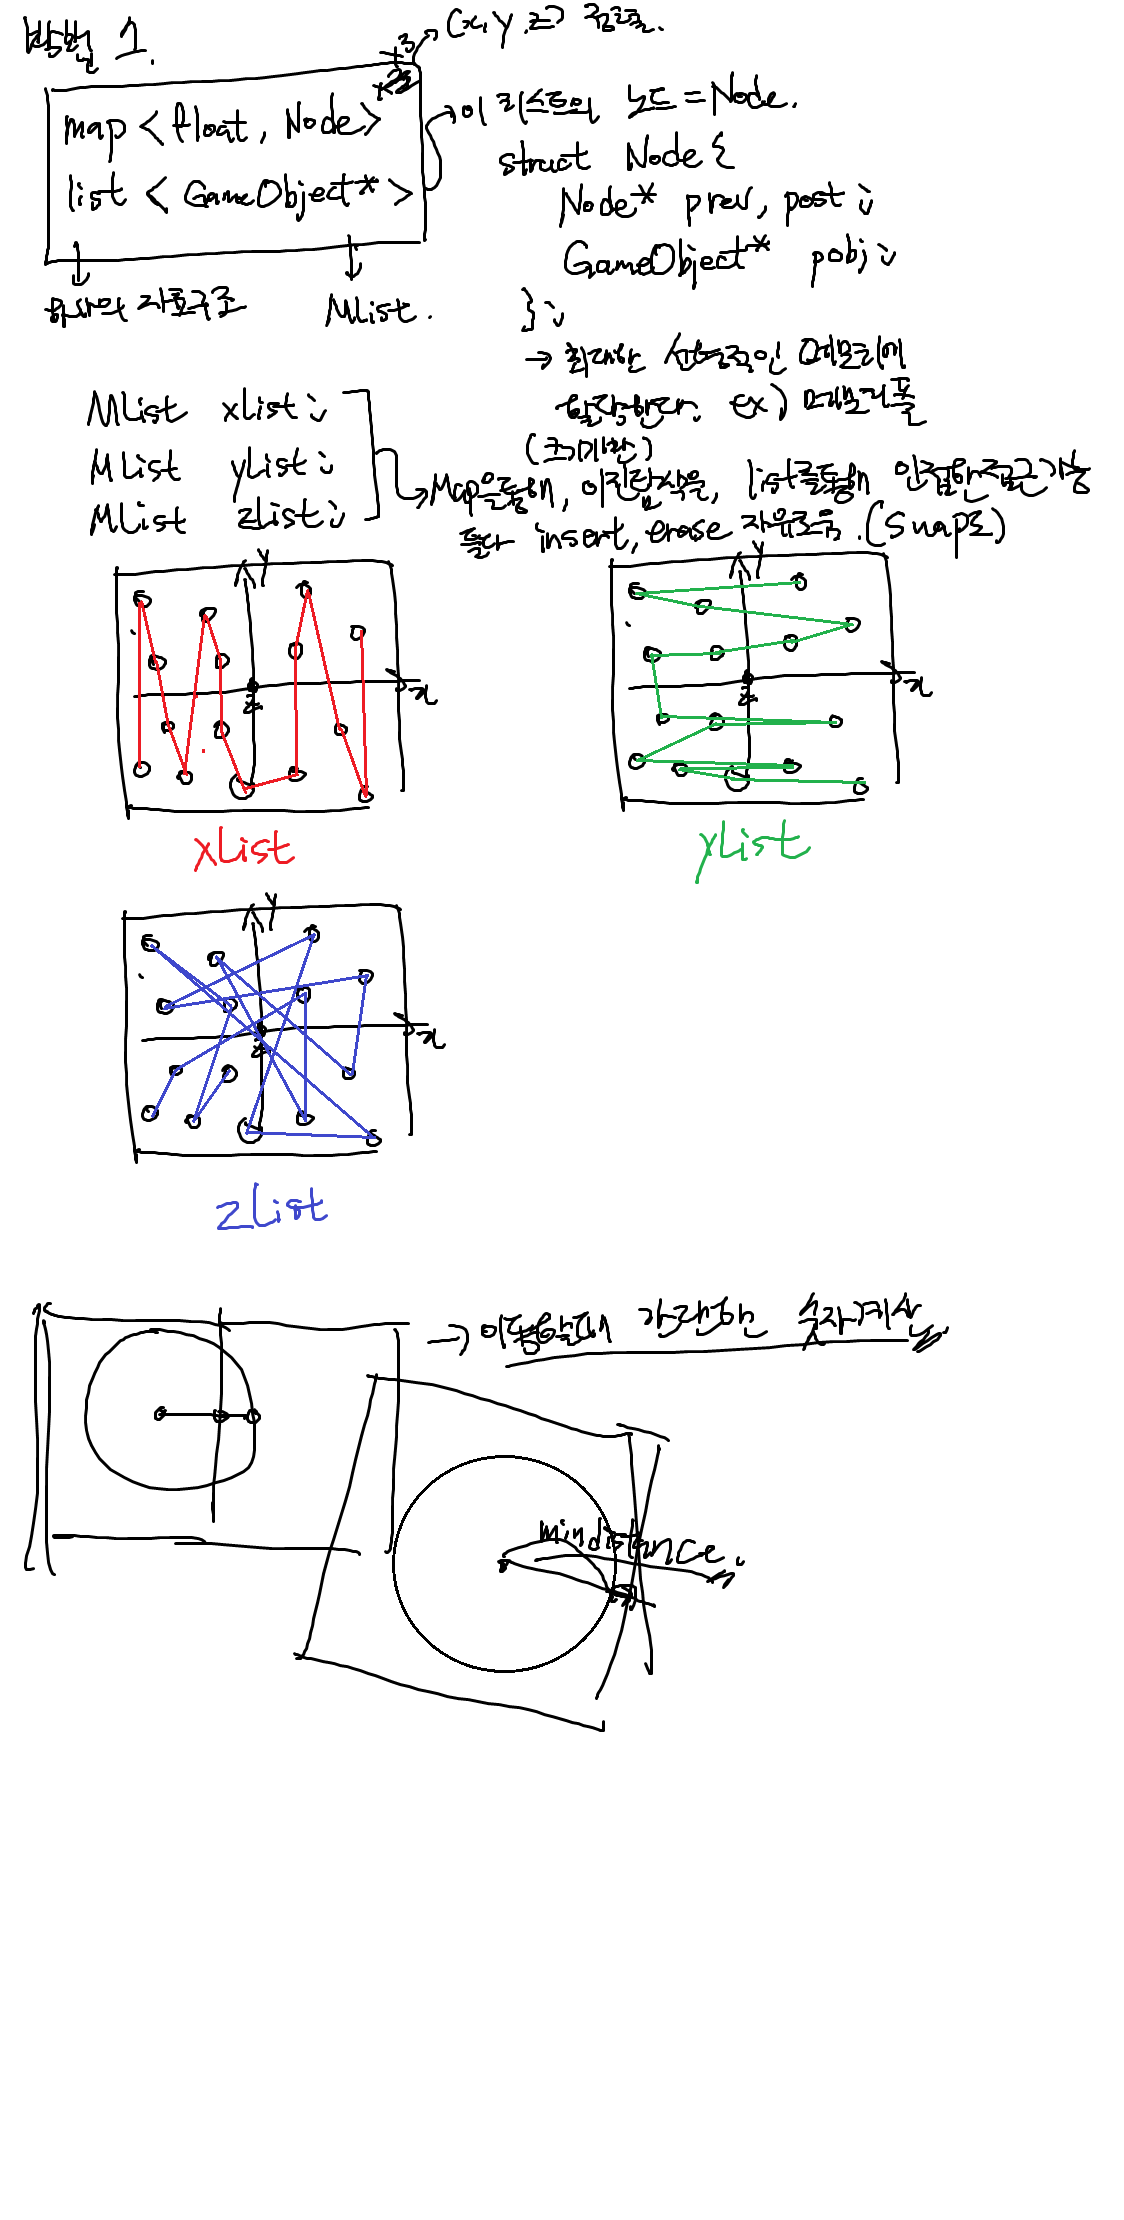 방법 1.
×3 → (x, y, z) 좌표로.
map < float, Node>
list < GameObject* >
→ 이 리스트의 노드 = Node.
struct Node {
Node* prev, post;
GameObject* pobj;
};
유사의 자료구조
MList.
→ 최대한 선형적인 메모리에
할당한다. ex) 메모리풀
MList xlist;
MList ylist;
MList zlist;
→ Map을 통해, 이진탐색을, list를 통해 인접한 접근 가능
둘다 insert, erase 자유로움. (swap도)
y
x
z
xList
y
x
z
yList
y
x
z
zList
→ 이동할때 간단한 숫자계산
min distance.